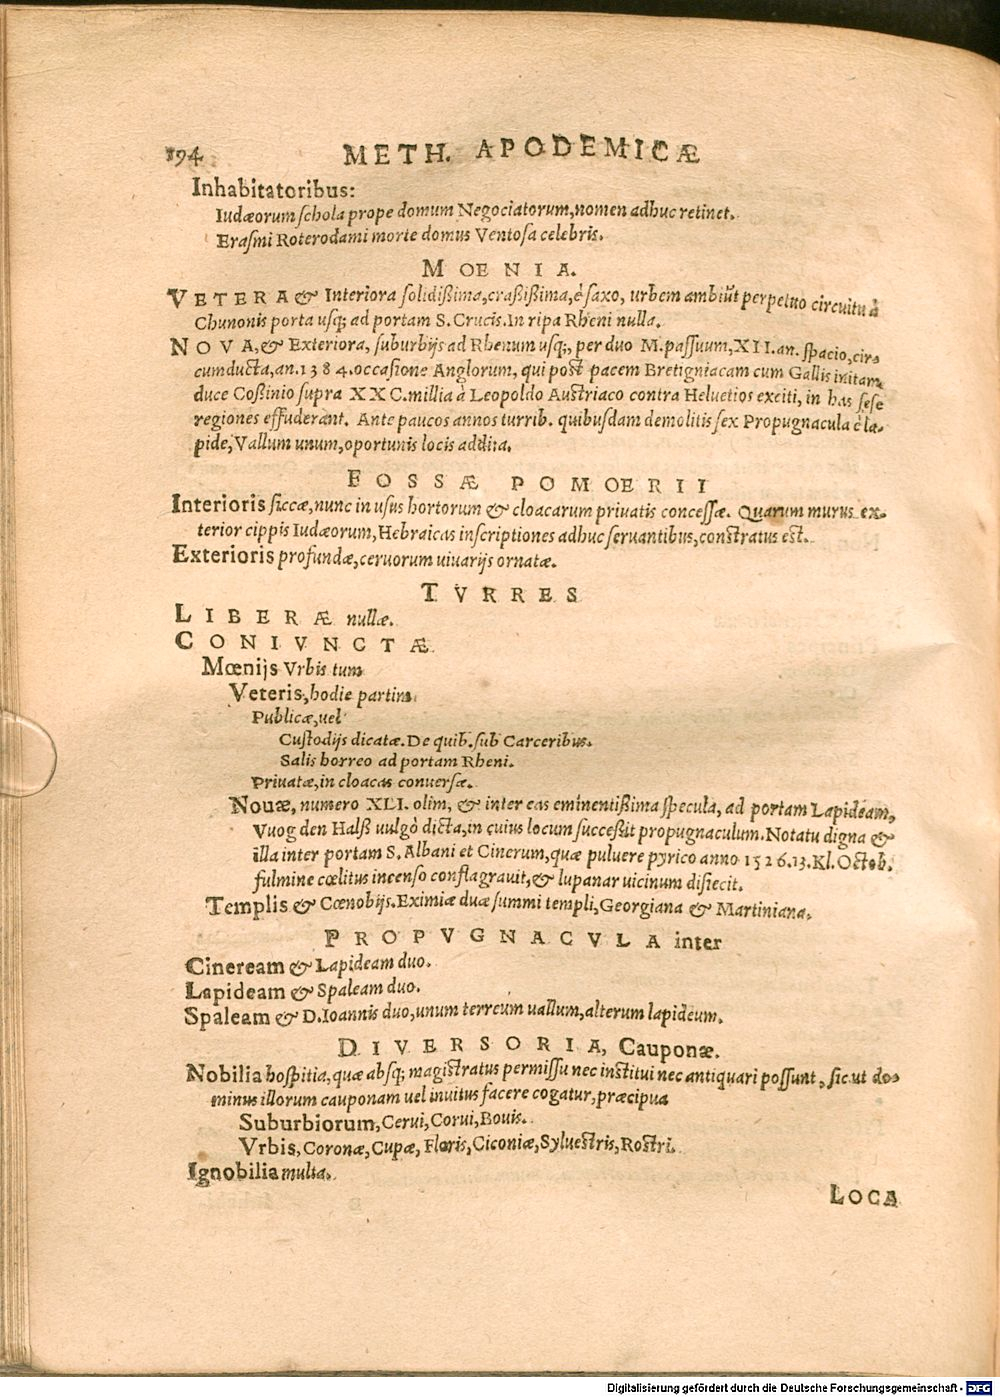 194 METH. APODEMICÆ
Inhabitatoribus:
Iudæorum schola prope domum Negociatorum, nomen adhuc retinet.
Erasmi Roterodami morte domus Ventosa celebris.
MOENIA.
VETERA & Interiora solidißima, craßißima, è saxo, urbem ambiũt perpetuo circuitu à
Chunonis porta usq; ad portam S. Crucis. In ripa Rheni nulla.
NOVA, & Exteriora, suburbijs ad Rhenum usq;, per duo M. passuum, XII. an. spacio, cir-
cumducta, an. 1384. occasione Anglorum, qui post pacem Bretigniacam cum Gallis initam
duce Coßinio supra XXC. millia à Leopoldo Austriaco contra Helvetios exciti, in has sese
regiones effuderant. Ante paucos annos turrib. quibusdam demolitis sex Propugnacula è la-
pide, Vallum unum, oportunis locis addita.
FOSSÆ POMOERII
Interioris siccæ, nunc in usus hortorum & cloacarum privatis concessæ. Quarum murus ex-
terior cippis Iudæorum, Hebraicas inscriptiones adhuc servantibus, constratus est.
Exterioris profundæ, cervorum vivarijs ornatæ.
TVRRES
LIBERÆ nullæ.
CONIVNCTÆ
Mœnijs Vrbis tum
Veteris, hodie partim
Publicæ, uel
Custodijs dicatæ. De quib. sub Carceribus.
Salis horreo ad portam Rheni.
Privatæ, in cloacas conversæ.
Nouæ, numero XLI. olim, & inter eas eminentißima specula, ad portam Lapideam,
Vuog den Halß uulgò dicta, in cuius locum succeßit propugnaculum. Notatu digna &
illa inter portam S. Albani et Cinerum, quæ puluere pyrico anno 1526. 13. Kl. Octob.
fulmine cœlitus incenso conflagrauit, & lupanar uicinum disiecit.
Templis & Cœnobijs. Eximiæ duæ summi templi, Georgiana & Martiniana.
PROPVGNACVLA inter
Cineream & Lapideam duo.
Lapideam & Spaleam duo.
Spaleam & D. Ioannis duo, unum terreum uallum, alterum lapideum.
DIVERSORIA, Cauponæ.
Nobilia hospitia, quæ absq; magistratus permissu nec institui nec antiquari possunt, sic ut do-
minus illorum cauponam uel inuitus facere cogatur, præcipua
Suburbiorum, Cerui, Corui, Bouis.
Vrbis, Coronæ, Cupæ, Floris, Ciconiæ, Syluestris, Rostri.
Ignobilia multa.
LOCA
Digitalisierung gefördert durch die Deutsche Forschungsgemeinschaft - DFG